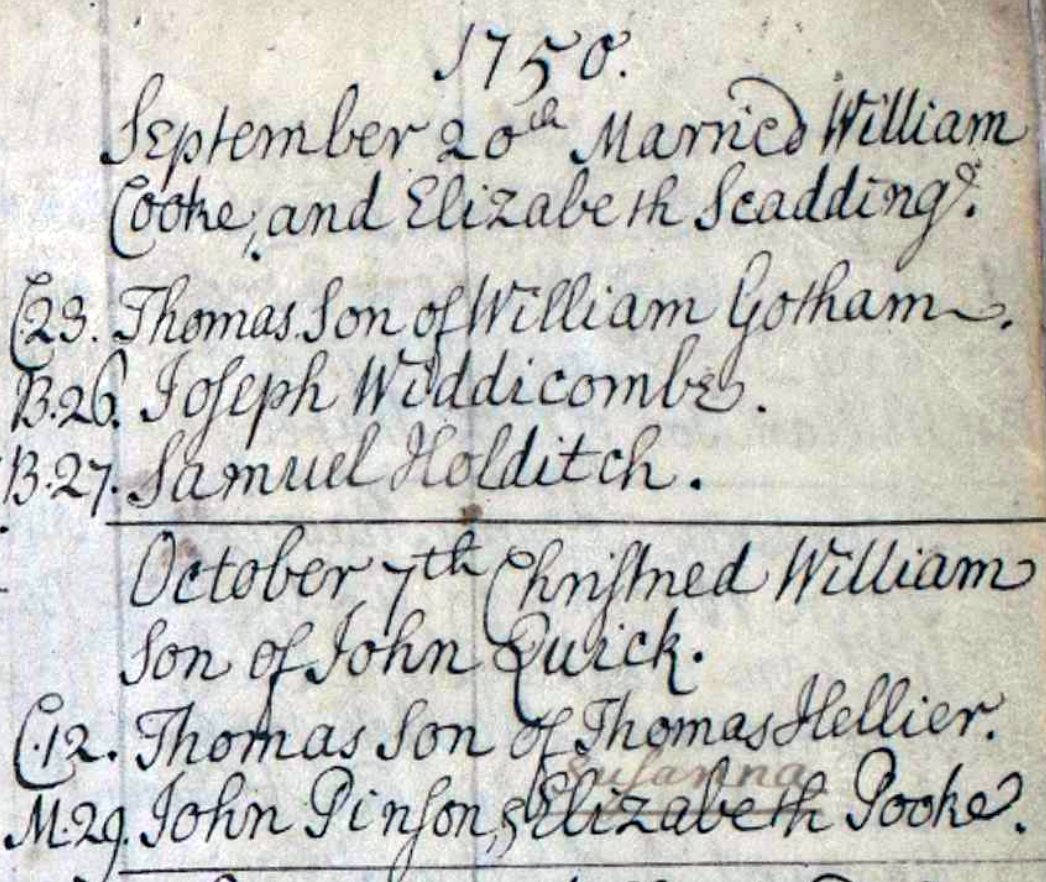 1750.
September 20th Married William
Cooke, and Elizabeth Scadding.
C.23. Thomas Son of William Gotham.
B.26. Joseph Widdicombe.
B.27. Samuel Holditch.
October 7th Christned William
Son of John Quick.
C.12. Thomas Son of Thomas Hellier.
Susanna
M.29. John Pinson, & Elizabeth Pooke.